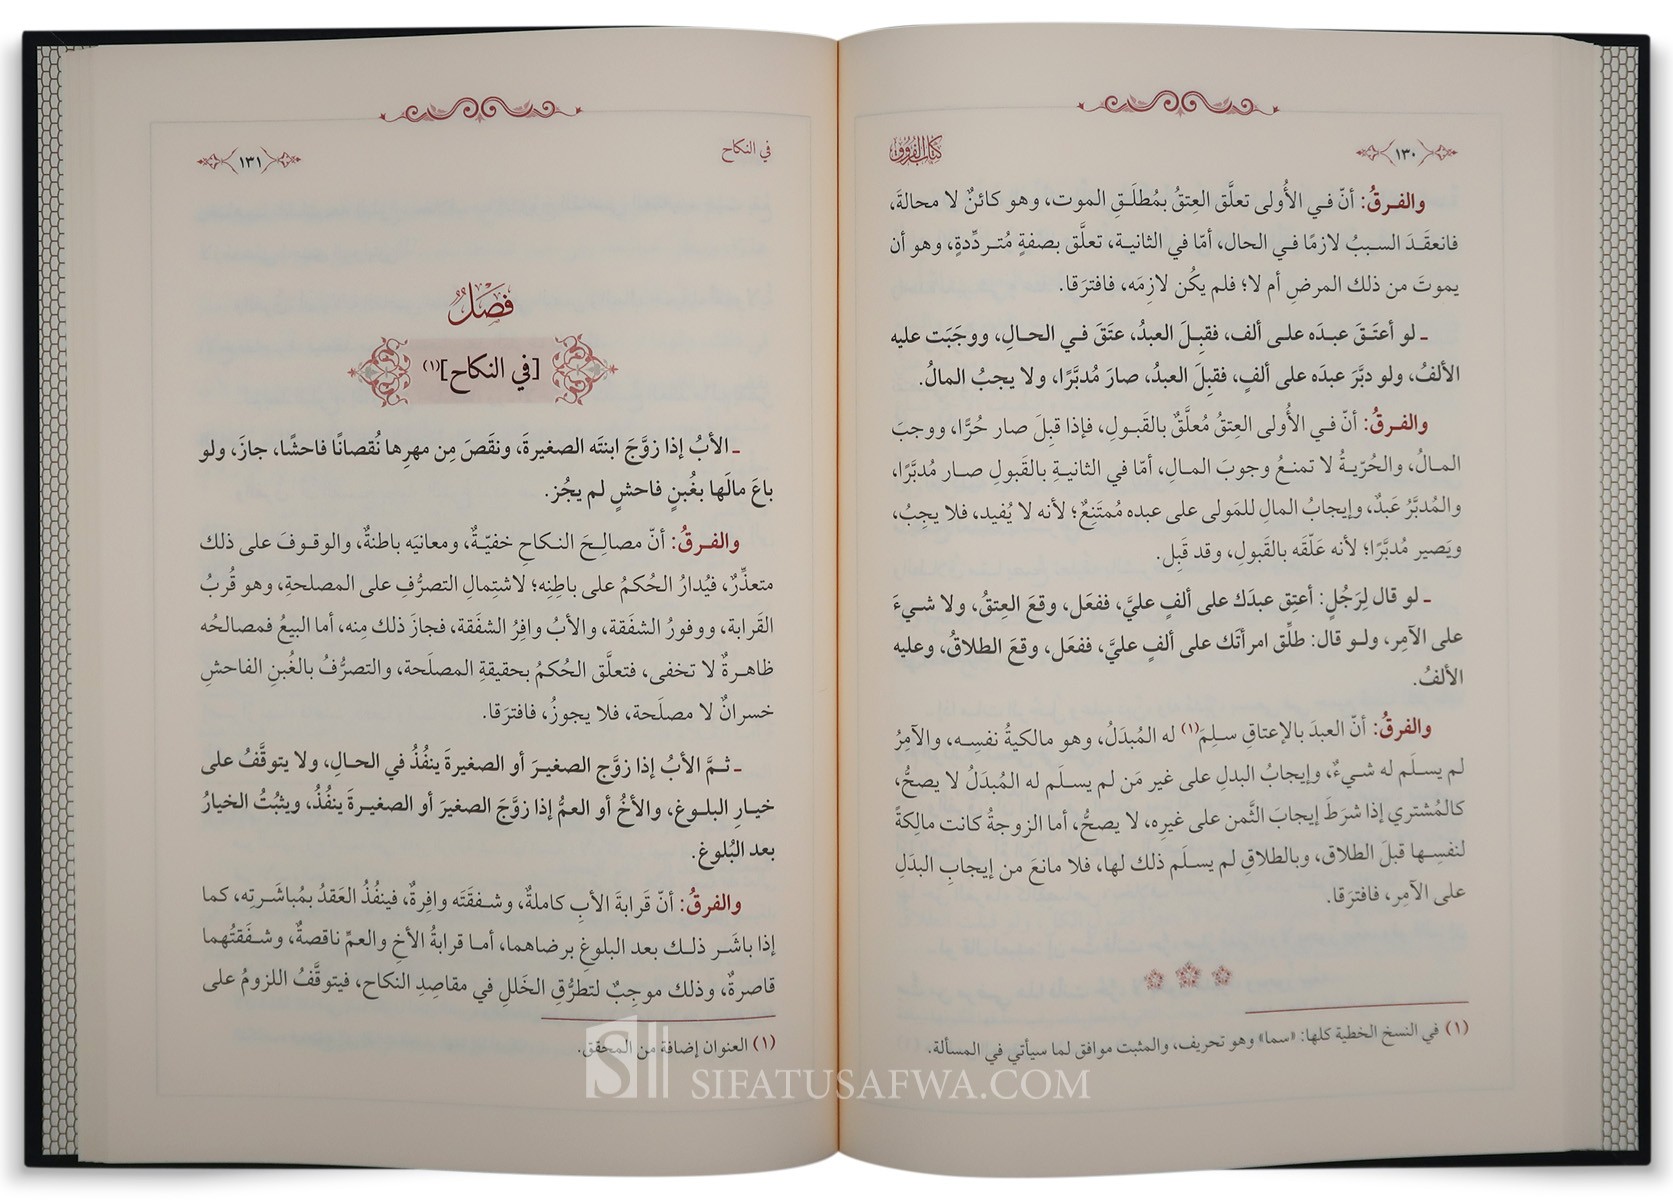 كتاب الفروق
١٣٠
والفـرقُ: أنّ فـي الأُولى تعلَّق العِتقُ بمُطلَـقِ الموت، وهو كائنٌ لا محالةَ،
فانعقَـدَ السـببُ لازمًا فـي الحال، أمّا في الثانيـة، تعلَّق بصفةٍ مُتـردِّدةٍ، وهو أن
يموتَ من ذلك المرضِ أم لا؛ فلم يكُن لازِمَه، فافترَقا.
ـ لو أعتَـقَ عبـدَه علـى ألف، فقبِـلَ العبدُ، عتَقَ فـي الحـالِ، ووجَبَت عليه
الألفُ، ولو دبَّرَ عبدَه على ألفٍ، فقبِلَ العبدُ، صارَ مُدبَّرًا، ولا يجبُ المالُ.
والفـرقُ: أنّ فـي الأُولى العِتقُ مُعلَّقٌ بالقَبـولِ، فإذا قبِلَ صار حُرًّا، ووجبَ
المـالُ، والحُرّيـةُ لا تمنـعُ وجوبَ المـالِ، أمّا في الثانيـةِ بالقَبولِ صـار مُدبَّرًا،
والمُدبَّرُ عَبدٌ، وإيجابُ المالِ للمَولى على عبده مُمتَنِعٌ؛ لأنه لا يُفيد، فلا يجِبُ،
ويَصير مُدبَّرًا؛ لأنه عَلّقَه بالقَبولِ، وقد قَبِل.
ـ لو قال لِرَجُلٍ: أعتِق عبدَك على ألفٍ عليَّ، ففعَل، وقعَ العِتقُ، ولا شيءَ
على الآمِر، ولـو قال: طلِّق امرأتَك على ألفٍ عليَّ، ففعَل، وقعَ الطلاقُ، وعليه
الألفُ.
والفرقُ: أنّ العبدَ بالإعتاقِ سـلِمَ(١) له المُبدَلُ، وهو مالكيةُ نفسِـه، والآمِرُ
لم يسـلَم له شـيءٌ، وإيجابُ البدلِ على غير مَن لم يسـلَم له المُبدَلُ لا يصحُّ،
كالمُشتري إذا شرَطَ إيجابَ الثَّمن على غيرِه، لا يصحُّ، أما الزوجةُ كانت مالِكةً
لنفسِـها قبلَ الطلاق، وبالطلاقِ لم يسـلَم ذلك لها، فلا مانعَ من إيجابِ البدَلِ
على الآمِر، فافترَقا.
(١) في النسخ الخطية كلها: «سما» وهو تحريف، والمثبت موافق لما سيأتي في المسألة.
في النكاح
١٣١
فَصْلٌ
[في النكاح](١)
ـ الأبُ إذا زوَّجَ ابنتَه الصغيرةَ، ونقَصَ مِن مهرِها نُقصانًا فاحشًا، جازَ، ولو
باعَ مالَها بغُبنٍ فاحشٍ لم يجُز.
والفـرقُ: أنّ مصالـحَ النـكاحِ خفيّـةٌ، ومعانيَه باطنةٌ، والوقـوفَ على ذلك
متعذِّرٌ، فيُدارُ الحُكمُ على باطِنِه؛ لاشتِمالِ التصرُّفِ على المصلحةِ، وهو قُربُ
القَرابة، ووفورُ الشفَقة، والأبُ وافِرُ الشفَقة، فجازَ ذلك مِنه، أما البيعُ فمصالحُه
ظاهـرةٌ لا تخفى، فتعلَّق الحُكمُ بحقيقةِ المصلَحة، والتصرُّفُ بالغُبنِ الفاحشِ
خسرانٌ لا مصلَحة، فلا يجوزُ، فافترَقا.
ـ ثـمَّ الأبُ إذا زوَّج الصغيـرَ أو الصغيرةَ ينفُذُ في الحـالِ، ولا يتوقَّفُ على
خيـارِ البلـوغ، والأخُ أو العمُّ إذا زوَّجَ الصغيرَ أو الصغيـرةَ ينفُذُ، ويثبُتُ الخيارُ
بعد البُلوغ.
والفرقُ: أنّ قرابةَ الأبِ كاملةٌ، وشـفقَتَه وافِرةٌ، فينفُذُ العَقدُ بمُباشَـرتِه، كما
إذا باشَـر ذلـك بعد البلوغِ برضاهما، أمـا قرابةُ الأخِ والعمِّ ناقصةٌ، وشـفَقتُهما
قاصرةٌ، وذلك موجِبٌ لتطرُّقِ الخَللِ في مقاصِدِ النكاح، فيتوقَّفُ اللزومُ على
(١) العنوان إضافة من المحقق.
SIFATUSAFWA.COM